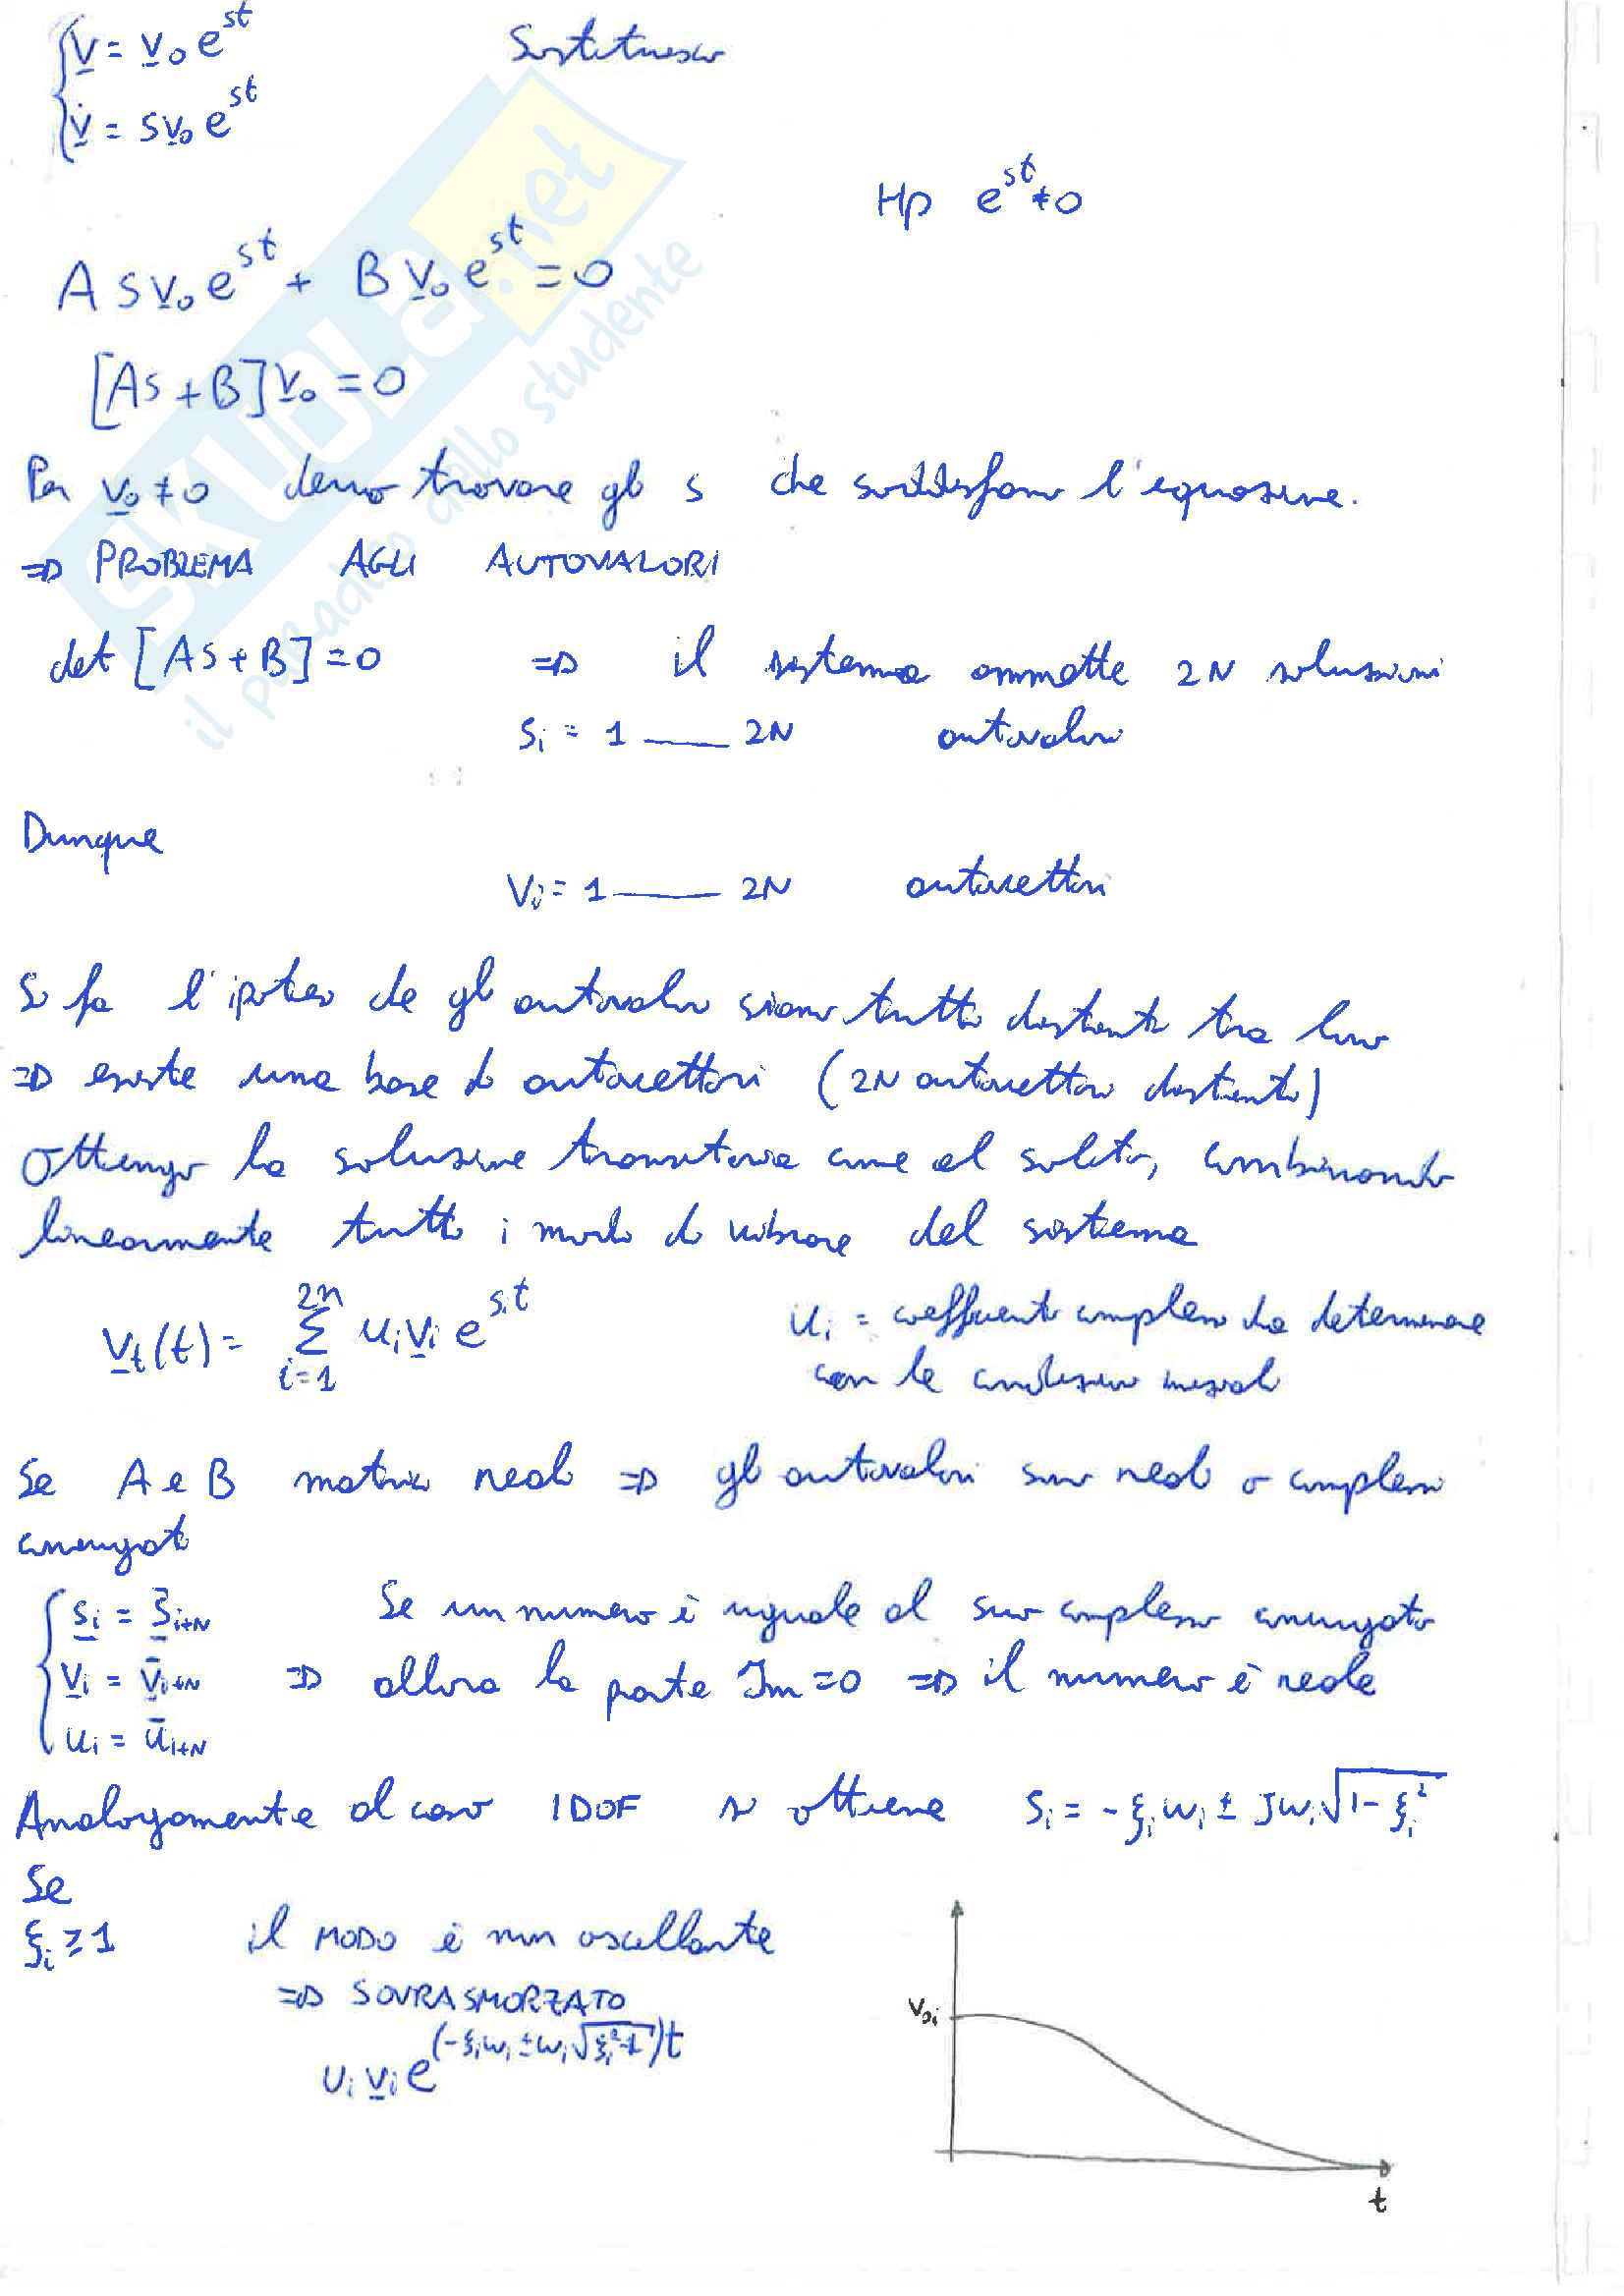 v = v₀ e^{st} Sostituisco
v̇ = s v₀ e^{st}
Hp e^{st} ≠ 0
A s v₀ e^{st} + B v₀ e^{st} = 0
[As + B] v₀ = 0
Per v₀ ≠ 0 devo trovare gli s che soddisfano l'equazione.
⇒ PROBLEMA AGLI AUTOVALORI
det [As + B] = 0 ⇒ il sistema ammette 2N soluzioni
sᵢ = 1 — 2N autovalori
Dunque
vᵢ = 1 — 2N autovettori
Si fa l'ipotesi che gli autovalori siano tutti distinti tra loro
⇒ esiste una base di autovettori (2N autovettori distinti)
Ottengo la soluzione transitoria come al solito, combinando
linearmente tutti i modi di vibrare del sistema
v_t(t) = Σ_{i=1}^{2n} uᵢ vᵢ e^{sᵢt} uᵢ = coefficienti complessi da determinare
con le condizioni iniziali
Se A e B matrici reali ⇒ gli autovalori sono reali o complessi
coniugati
sᵢ = s̄ᵢ₊N Se un numero è uguale al suo complesso coniugato
vᵢ = v̄ᵢ₊N ⇒ allora la parte Im = 0 ⇒ il numero è reale
uᵢ = ūᵢ₊N
Analogamente al caso 1DOF si ottiene sᵢ = -ξᵢ wᵢ ± J wᵢ √(1 - ξᵢ²)
Se
ξᵢ ≥ 1 il MODO è non oscillante
⇒ SOVRASMORZATO
uᵢ vᵢ e^{(-ξᵢwᵢ ± wᵢ√(ξᵢ²-1))t}
v₀ᵢ
t
SKUOLA.net
il paradiso dello studente